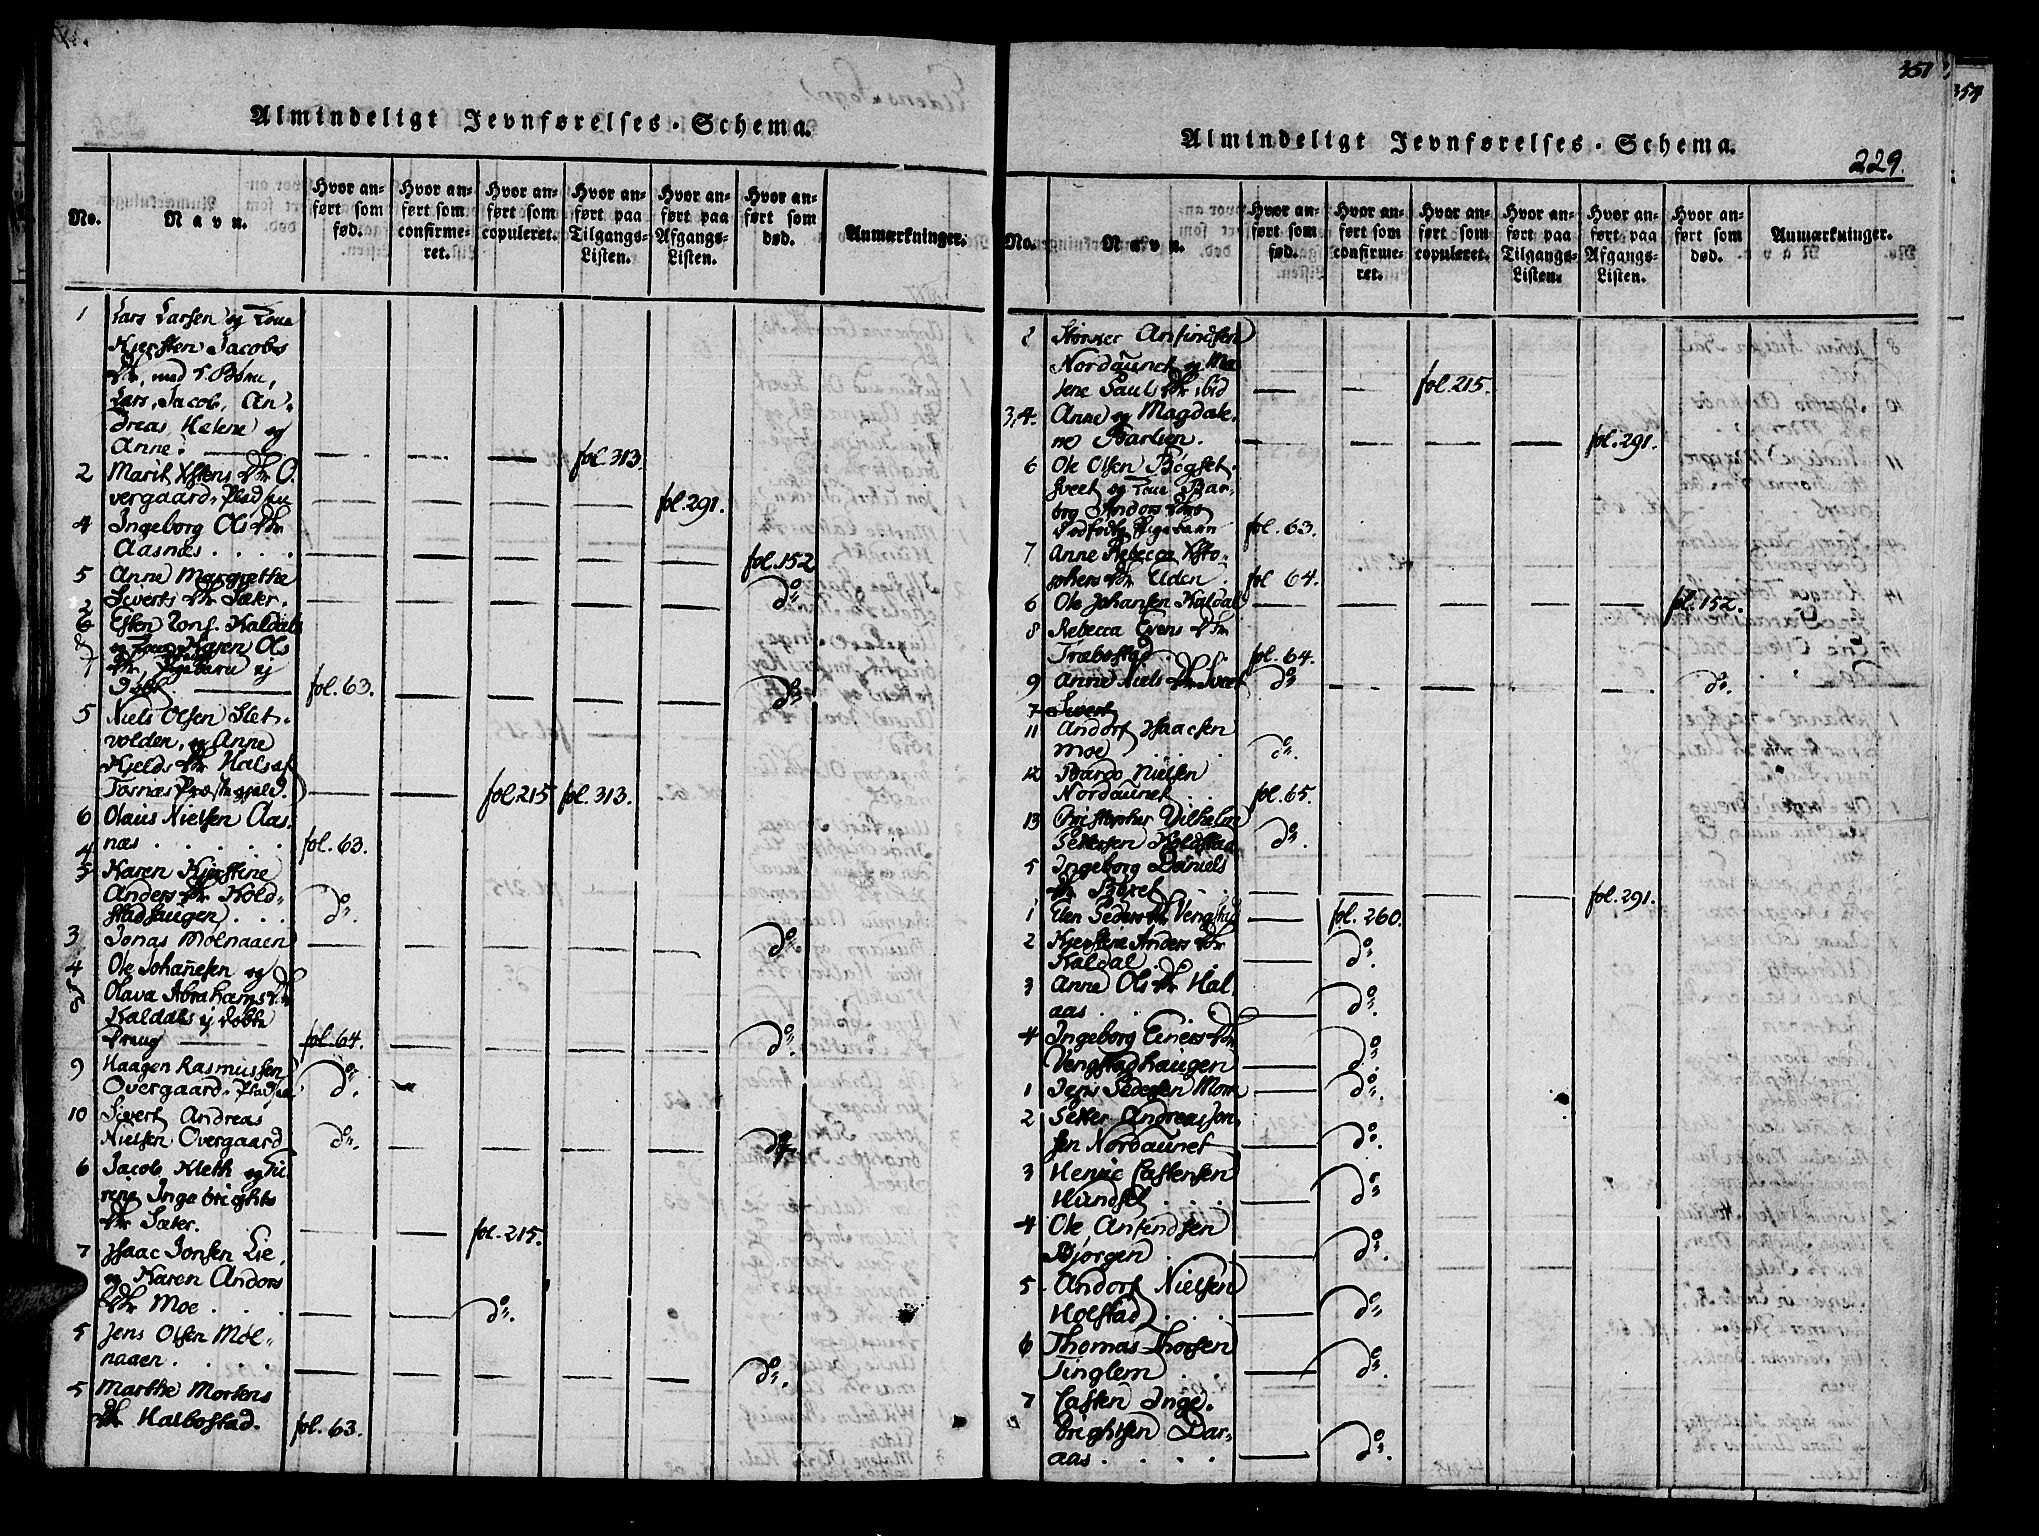 351
Almindeligt Jevnførelses-Schema.
No.
Navn.
Hvor an-
ført som
fød.
Hvor an-
ført som
confirme-
ret.
Hvor an-
ført som
copuleret.
Hvor an-
ført paa
Tilgangs-
Listen.
Hvor an-
ført paa
Afgangs-
Listen.
Hvor an-
ført som
død.
Anmærkninger.
1 Lars Larsen og Kone
Kjersten Jacobs
Dtr, med 5 Børn,
Lars, Jacob, An-
dreas Helene og
Anne. fol. 313.
2 Marit Estens Dtr O-
vergaards Plads fol. 291.
4 Ingeborg Ols Dtr
Aasnæs . . . . fol. 152
5 Anne Margrethe
Siverts Dtr Sæter. do.
Esten Kaldals
og Karen Ols
Dtr Pigebarn ej
døbt. fol. 63. do.
5 Niels Olsen Slet-
volden, og Anne
Kjelds Dtr Hals af
Fosnæs Præstegjeld. fol. 215 fol. 313.
6 Olaus Nielsen Aas-
næs . . . . . fol. 63.
Karen Kjerstine
Anders Dtr Hold-
stadhaugen . . . do.
3 Jonas Molnaaen do.
4 Ole Johannesen og
Olava Abrahams Dtr
Kaldals ej døbte
Dreng fol. 64. do.
9 Haagen Rasmussen
Overgaards Pladsen do.
10 Sivert Andreas
Nielsen Overgaard do. do.
6 Jacob Kleth og
Ingebrigts
Dtr Sæter. fol. 215.
7 Isaac Jonsen Lie,
og Karen Andors
Dtr Moe . . . do.
5 Jens Olsen Møl-
naaen . . . . do.
5 Marthe Mortens
Dtr Halbostad. fol. 63.
Almindeligt Jevnførelses-Schema.
229.
No.
Navn.
Hvor an-
ført som
fød.
Hvor an-
ført som
confirme-
ret.
Hvor an-
ført som
copuleret.
Hvor an-
ført paa
Tilgangs-
Listen.
Hvor an-
ført paa
Afgangs-
Listen.
Hvor an-
ført som
død.
Anmærkninger.
Anfindsen
Nordaunet og Ma-
lene Pauls Dtr ibid fol. 215.
3,4. Anne og Magdale-
ne Barlien. fol. 291.
6 Ole Olsen Bøgset-
sveet og Kone Bar-
bro Andors Dtrs
dødfødte Pigebarn fol. 63.
7 Anne Rebecca Xsto-
phers Dtr Elden. fol. 64.
6 Ole Johansen Kaldal fol. 152.
8 Rebecca Evens Dtr
Træbostad. . . fol. 64.
9 Anne Niels Dtr Sveet do. do.
7 Sivert
11 Andorf Isaacsen
Moe . . . . do.
12 Bardo Nielsen
Nordaunet . . fol. 65.
13 Christopher Vilhelm
Pettersen Holdstad do.
5 Ingeborg Daniels
Dtr . . . fol. 291.
1 Elen Peders Dtr Vengstad fol. 260.
2 Kjerstine Anders Dtr
Kaldal . . do.
3 Anne Ols Dtr Hal-
aas . . . do.
4 Ingeborg Einers Dtr
Vengstadhaugen do.
1 Jens Pedersen Moen do.
2 Petter Andreas Jon-
sen Nordaunet do.
3 Henric Castensen
Hundsel . . . do.
4 Ole Anfindsen
Bjørgen . do.
5 Andorf Nielsen
Holstad . . . do.
6 Thomas Thorsen
Tinglem . . do.
7 Casten Inge-
brigtsen Dar-
aas . . . . do.